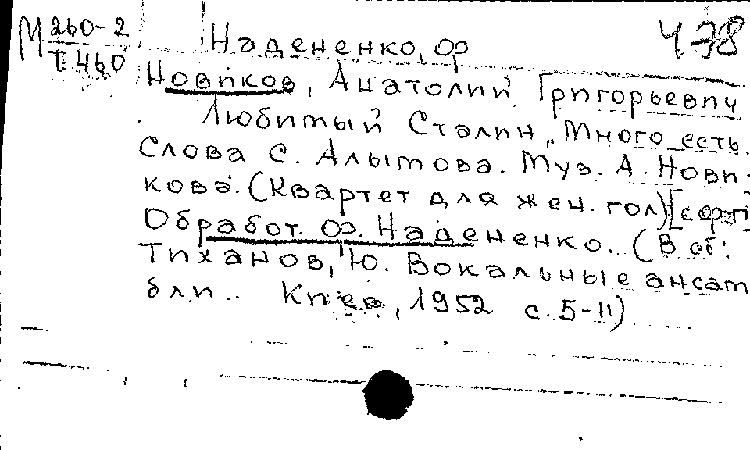 М 260-2 Надененко, Ф 478
Т 460
Новиков, Анатолий Григорьевич
Любимый Сталин „Много есть.
Слова С. Алымова. Муз. А. Нови-
кова. (Квартет для жен. гол)
Обработ. Ф. Надененко.. (В сб:
Тиханов, Ю. Вокальные ансам
бли.. Киев, 1952 с. 5-11)